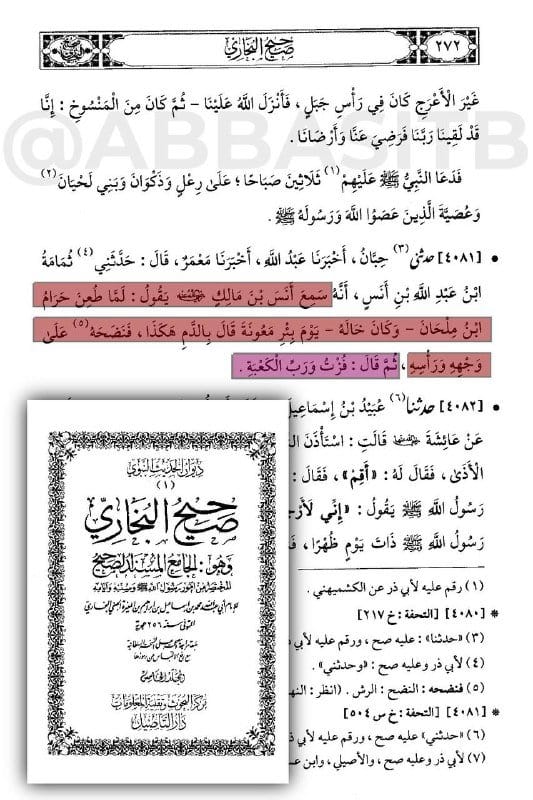 ٢٧٢
صحيح البخاري
@ABBASITB
غَيْرَ الْأَعْرَجِ كَانَ فِي رَأْسِ جَبَلٍ، فَأَنْزَلَ اللَّهُ عَلَيْنَا - ثُمَّ كَانَ مِنَ الْمَنْسُوخِ : إِنَّا
قَدْ لَقِينَا رَبَّنَا فَرَضِيَ عَنَّا وَأَرْضَانَا .
فَدَعَا النَّبِيُّ ﷺ عَلَيْهِمْ (١) ثَلَاثِينَ صَبَاحًا ؛ عَلَى رِعْلٍ وَذَكْوَانَ وَبَنِي لَحْيَانَ (٢)
وَعُصَيَّةَ الَّذِينَ عَصَوُا اللَّهَ وَرَسُولَهُ ﷺ .
• [٤٠٨١] حدثني (٣) حِبَّانُ ، أَخْبَرَنَا عَبْدُ اللَّهِ، أَخْبَرَنَا مَعْمَرٌ، قَالَ : حَدَّثَنِي (٤) ثُمَامَةُ
ابْنُ عَبْدِ اللَّهِ بْنِ أَنَسٍ، أَنَّهُ سَمِعَ أَنَسَ بْنَ مَالِكٍ يَقُولُ : لَمَّا طُعِنَ حَرَامُ
ابْنُ مِلْحَانَ - وَكَانَ خَالَهُ - يَوْمَ بِئْرِ مَعُونَةَ قَالَ بِالدَّمِ هَكَذَا ، فَنَضَحَهُ (٥) عَلَى
وَجْهِهِ وَرَأْسِهِ، ثُمَّ قَالَ : فُزْتُ وَرَبِّ الْكَعْبَةِ .
• [٤٠٨٢] حدثنا (٦) عُبَيْدُ بْنُ إِسْمَاعِيلَ
عَنْ عَائِشَةَ قَالَتِ : اسْتَأْذَنَ
الْأَذَى، فَقَالَ لَهُ : «أَقِمْ» ، فَقَالَ :
رَسُولُ اللَّهِ ﷺ يَقُولُ : «إِنِّي لَأَرْجُ
رَسُولُ اللَّهِ ﷺ ذَاتَ يَوْمٍ ظُهْرًا ،
(١) رقم عليه لأبي ذر عن الكشميهني .
* [٤٠٨٠] [التحفة : خ ٢١٧]
(٣) «حدثنا» : عليه صح ، ورقم عليه لأبي
(٤) لأبي ذر وعليه صح : «وحدثني» .
(٥) فنضحه : النضح : الرش . (انظر : النها
* [٤٠٨١] [التحفة : خ س ٥٠٤]
(٦) «حدثني» عليه صح ، ورقم عليه لأبي
(٧) لأبي ذر وعليه صح ، والأصيلي ، وابن عس
ديوان الحديث النبوي
(١)
صحيح البخاري
وهو : الجامع المسند الصحيح
المختصر من أمور رسول الله ﷺ وسننه وأيامه
المتوفى سنة ٢٥٦ هجرية
المجلد الخامس
مركز البحوث وتقنية المعلومات
دار التأصيل